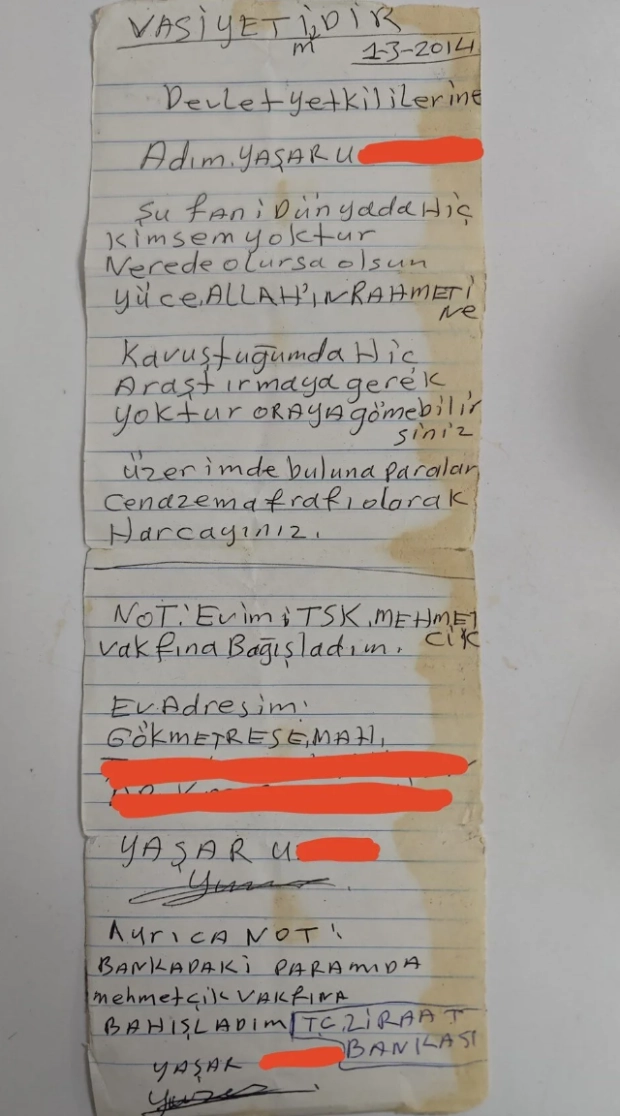 VASİYETİMDİR
1-3-2014
Devlet yetkililerine
Adım. YAŞAR U
Şu fani Dünyada Hiç
Kimsem yoktur
Nerede olursa olsun
yüce, ALLAH'IN RAHMETİ
NE
Kavuştuğumda Hiç
Araştırmaya gerek
yoktur ORAYA gömebilir
siniz
üzerimde buluna paralar
cenazemafrafı olarak
Harcayınız.
NOT: Evimi TSK, MEHMET
CİK
vakfına Bağışladım.
Ev. Adresim:
GÖKMETRESE, MAH,
YAŞAR U
AyrıCA NOT:
BANKADAKİ PARAMIDA
mehmetçik VAKfINA
BAHIŞLADIM T.C. ZİRAAT
BANKASI
YAŞAR